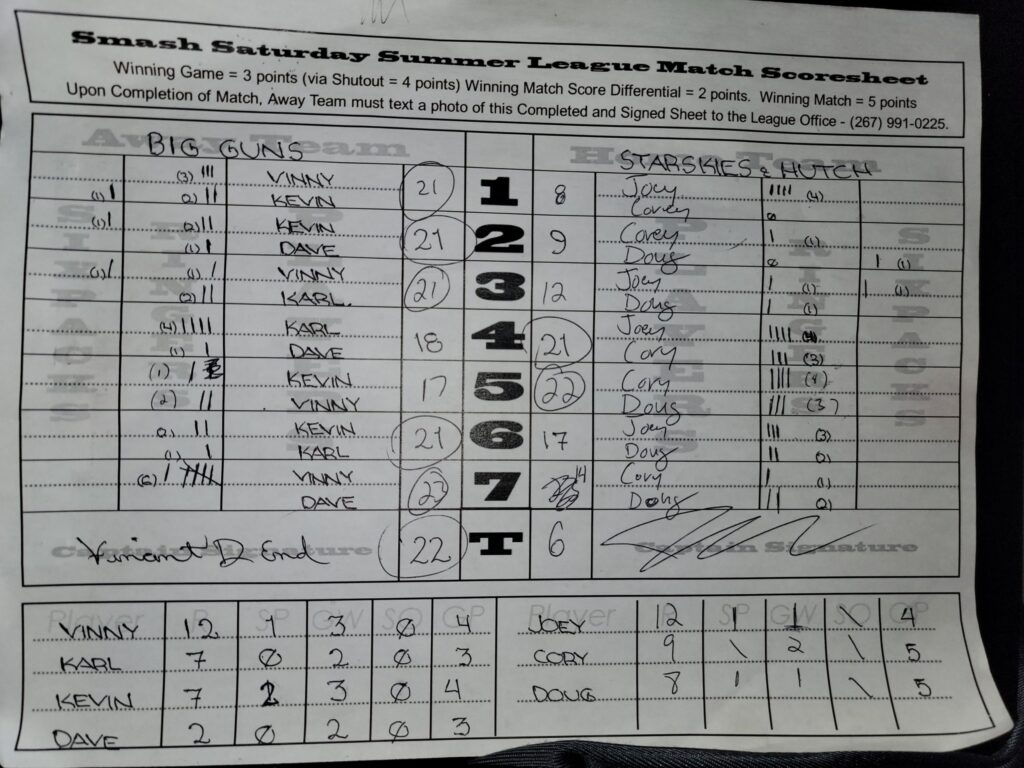 Smash Saturday Summer League Match Scoresheet
Winning Game = 3 points (via Shutout = 4 points) Winning Match Score Differential = 2 points. Winning Match = 5 points
Upon Completion of Match, Away Team must text a photo of this Completed and Signed Sheet to the League Office - (267) 991-0225.
Away Team Home Team
BIG GUNS STARSKIES & HUTCH
SIXPACKS RINGERS PLAYERS PLAYERS RINGERS SIXPACKS
(3) III VINNY 21 1 8 Joey IIII (4)
(1) I (2) II KEVIN Corey ø
(1) I (2) II KEVIN 21 2 9 Corey I (1)
(1) I DAVE Doug ø I (1)
(1) I (1) I VINNY 21 3 12 Joey I (1) I (1)
(2) II KARL. Doug I (1)
(4) IIII KARL 18 4 21 Joey IIII
(1) I DAVE Cory III (3)
(1) I KEVIN 17 5 22 Cory IIII (4)
(2) II VINNY Doug III (3)
(2) II KEVIN 21 6 17 Joey III (3)
(1) I KARL Doug II (2)
(6) I IIII VINNY 23 7 14 Cory I (1)
DAVE Doug II (2)
Captain Signature 22 T 6 Captain Signature
Player P SP GW SO GP Player R SP GW SO GP
VINNY 12 1 3 ø 4 JOEY 12 1 1 \ 4
KARL 7 ø 2 ø 3 CORY 9 \ 2 \ 5
KEVIN 7 2 3 ø 4 DOUG 8 1 1 \ 5
DAVE 2 ø 2 ø 3